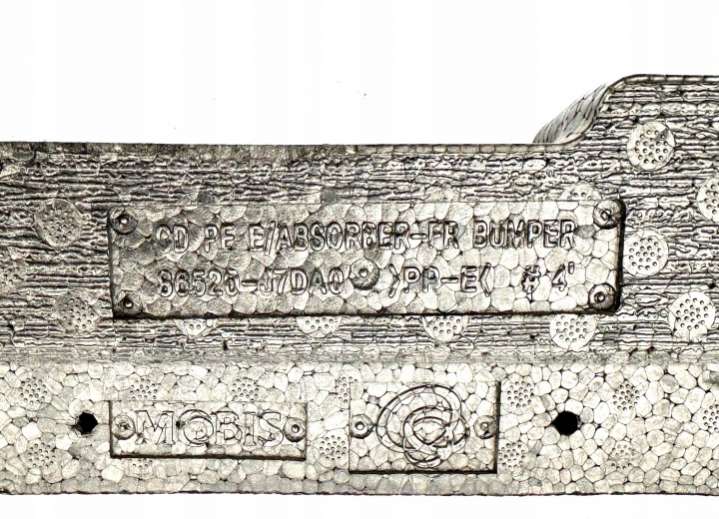 CD PE E/ABSORBER-FR BUMPER
86520-J7DA0 >PP-E< # 4'
MOBIS